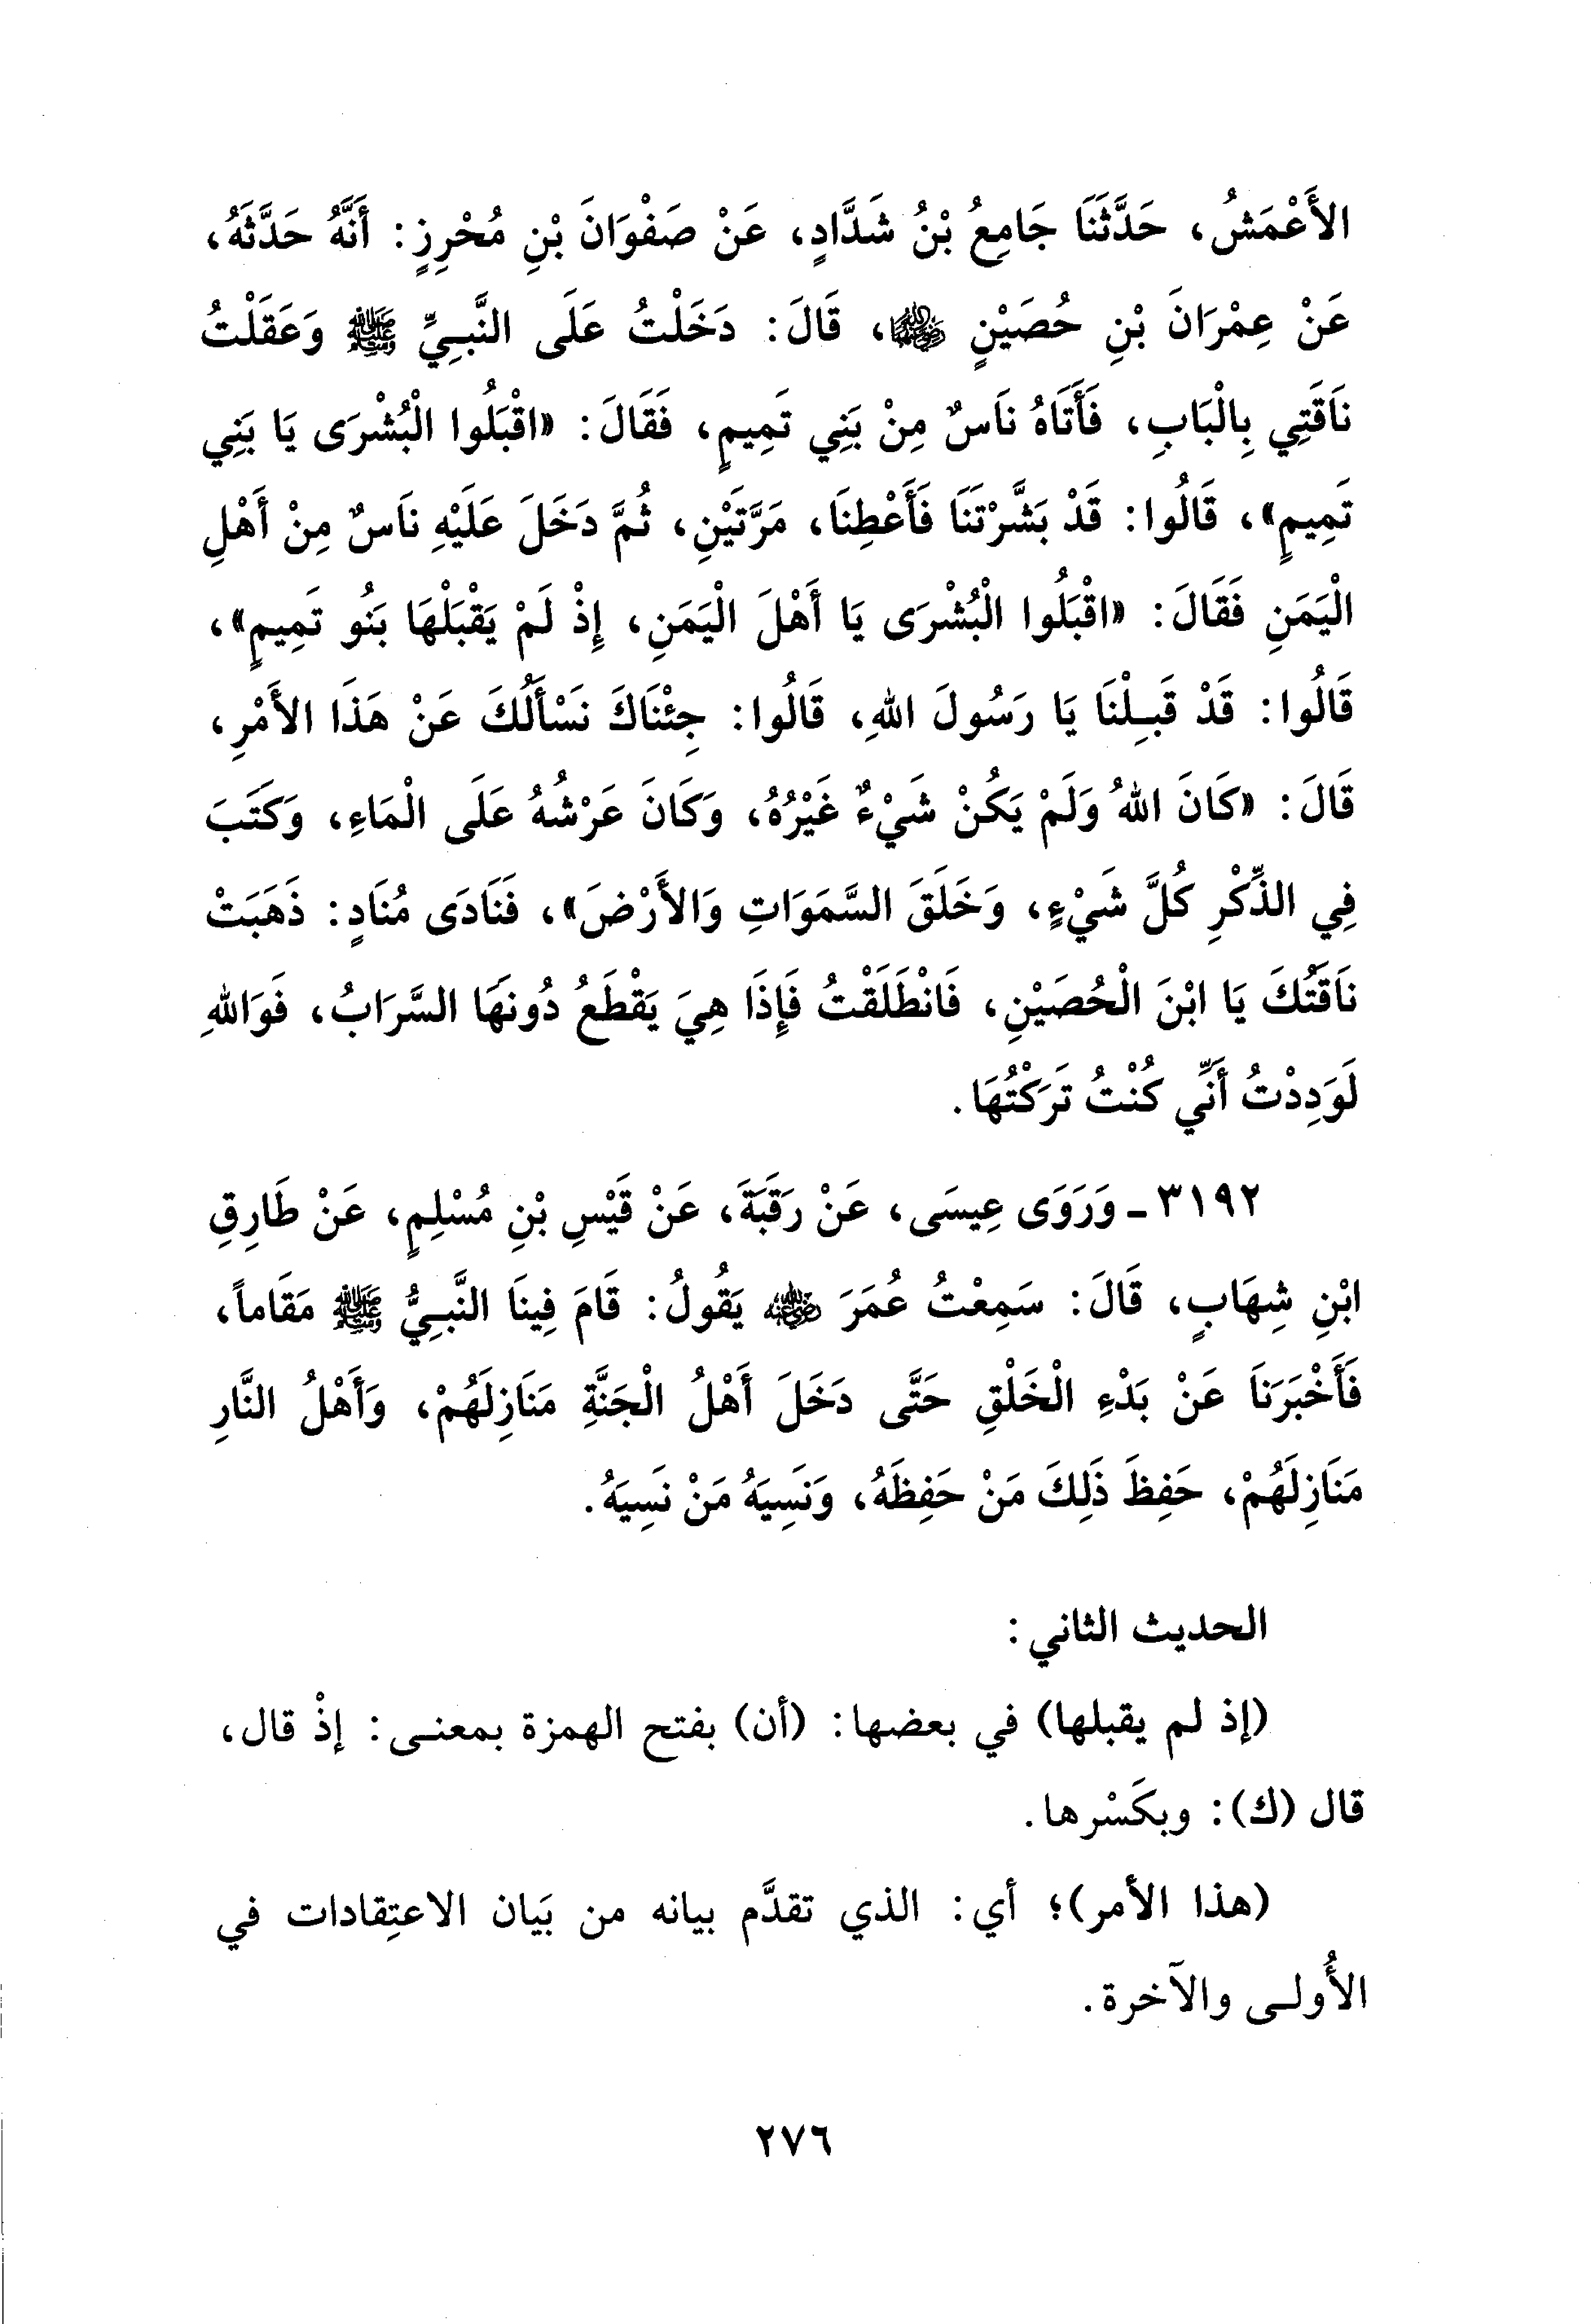 الأَعْمَشُ، حَدَّثَنَا جَامِعُ بْنُ شَدَّادٍ، عَنْ صَفْوَانَ بْنِ مُحْرِزٍ: أَنَّهُ حَدَّثَهُ،
عَنْ عِمْرَانَ بْنِ حُصَيْنٍ ﵄، قَالَ: دَخَلْتُ عَلَى النَّبِيِّ ﷺ وَعَقَلْتُ
نَاقَتِي بِالْبَابِ، فَأَتَاهُ نَاسٌ مِنْ بَنِي تَمِيمٍ، فَقَالَ: «اقْبَلُوا الْبُشْرَى يَا بَنِي
تَمِيمٍ»، قَالُوا: قَدْ بَشَّرْتَنَا فَأَعْطِنَا، مَرَّتَيْنِ، ثُمَّ دَخَلَ عَلَيْهِ نَاسٌ مِنْ أَهْلِ
الْيَمَنِ فَقَالَ: «اقْبَلُوا الْبُشْرَى يَا أَهْلَ الْيَمَنِ، إِذْ لَمْ يَقْبَلْهَا بَنُو تَمِيمٍ»،
قَالُوا: قَدْ قَبِلْنَا يَا رَسُولَ اللهِ، قَالُوا: جِئْنَاكَ نَسْأَلُكَ عَنْ هَذَا الأَمْرِ،
قَالَ: «كَانَ اللهُ وَلَمْ يَكُنْ شَيْءٌ غَيْرُهُ، وَكَانَ عَرْشُهُ عَلَى الْمَاءِ، وَكَتَبَ
فِي الذِّكْرِ كُلَّ شَيْءٍ، وَخَلَقَ السَّمَوَاتِ وَالأَرْضَ»، فَنَادَى مُنَادٍ: ذَهَبَتْ
نَاقَتُكَ يَا ابْنَ الْحُصَيْنِ، فَانْطَلَقْتُ فَإِذَا هِيَ يَقْطَعُ دُونَهَا السَّرَابُ، فَوَاللهِ
لَوَدِدْتُ أَنِّي كُنْتُ تَرَكْتُهَا.
٣١٩٢ - وَرَوَى عِيسَى، عَنْ رَقَبَةَ، عَنْ قَيْسِ بْنِ مُسْلِمٍ، عَنْ طَارِقِ
ابْنِ شِهَابٍ، قَالَ: سَمِعْتُ عُمَرَ ﵁ يَقُولُ: قَامَ فِينَا النَّبِيُّ ﷺ مَقَاماً،
فَأَخْبَرَنَا عَنْ بَدْءِ الْخَلْقِ حَتَّى دَخَلَ أَهْلُ الْجَنَّةِ مَنَازِلَهُمْ، وَأَهْلُ النَّارِ
مَنَازِلَهُمْ، حَفِظَ ذَلِكَ مَنْ حَفِظَهُ، وَنَسِيَهُ مَنْ نَسِيَهُ.
الحديث الثاني:
(إذ لم يقبلها) في بعضها: (أن) بفتح الهمزة بمعنى: إذْ قال،
قال (ك): وبكَسْرها.
(هذا الأمر)؛ أي: الذي تقدَّم بيانه من بَيان الاعتِقادات في
الأُولى والآخرة.
٢٧٦